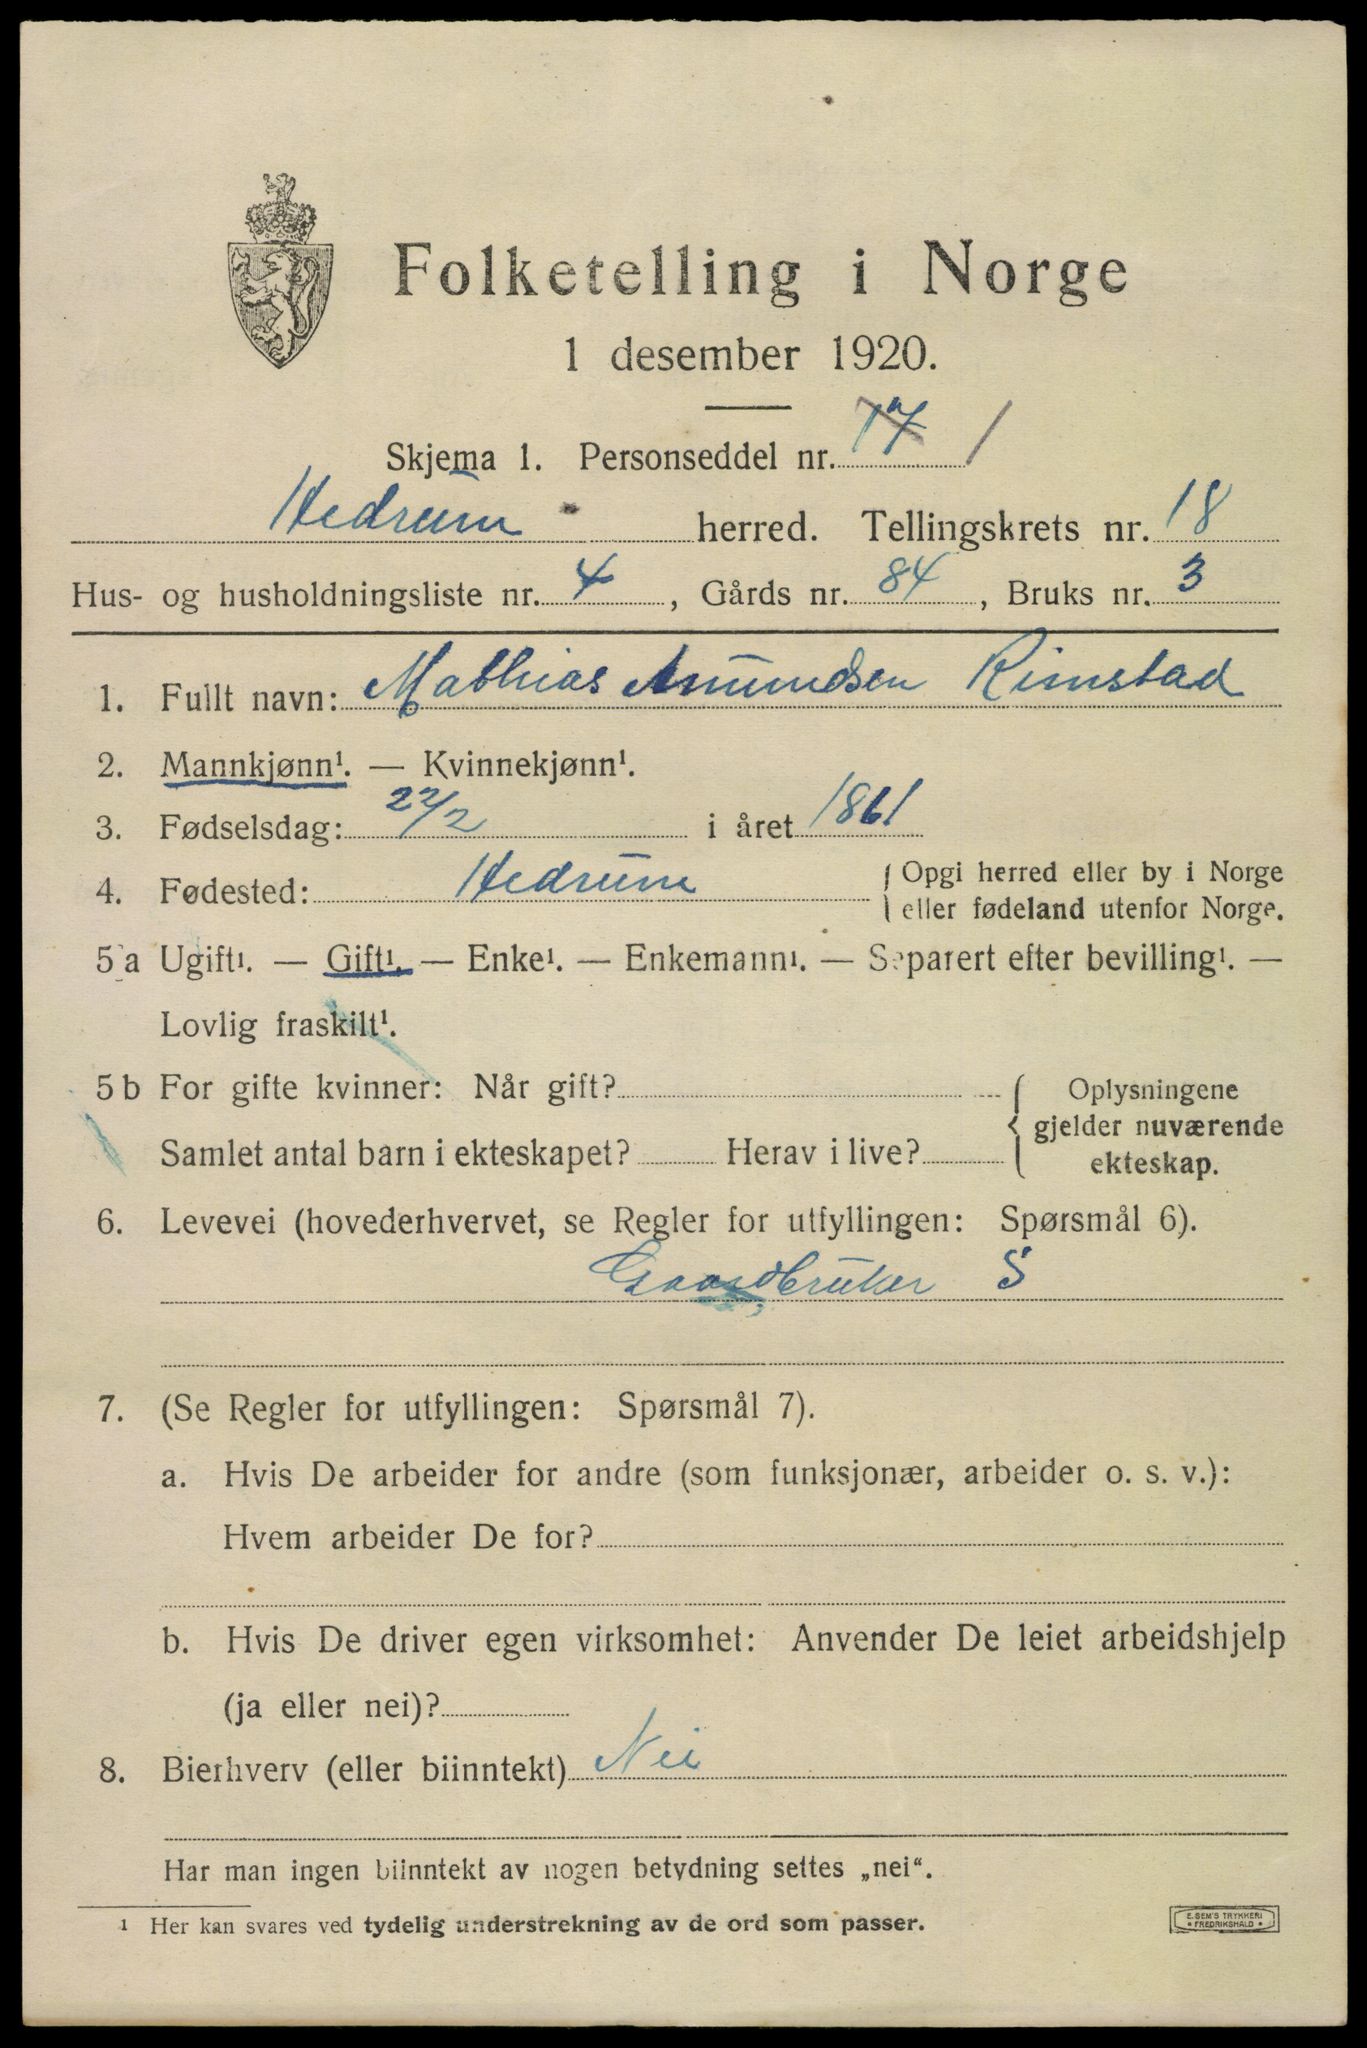 Folketelling i Norge
1 desember 1920.
Skjema 1. Personseddel nr. 17 1
Hedrum herred. Tellingskrets nr. 18
Hus- og husholdningsliste nr. 4, Gårds nr. 84, Bruks nr. 3
1. Fullt navn: Mathias Amundsen Rimstad
2. Mannkjønn¹. — Kvinnekjønn¹.
3. Fødselsdag: 22/2 i året 1861
4. Fødested: Hedrum { Opgi herred eller by i Norge
eller fødeland utenfor Norge.
5 a Ugift¹. — Gift¹. — Enke¹. — Enkemann¹. — Separert efter bevilling¹. —
Lovlig fraskilt¹.
5 b For gifte kvinner: Når gift? { Oplysningene
gjelder nuværende
Samlet antal barn i ekteskapet? Herav i live? ekteskap.
6. Levevei (hovederhvervet, se Regler for utfyllingen: Spørsmål 6).
Gaardbruker S
7. (Se Regler for utfyllingen: Spørsmål 7).
a. Hvis De arbeider for andre (som funksjonær, arbeider o. s. v.):
Hvem arbeider De for?
b. Hvis De driver egen virksomhet: Anvender De leiet arbeidshjelp
(ja eller nei)?
8. Bierhverv (eller biinntekt) Nei
Har man ingen biinntekt av nogen betydning settes „nei“.
¹ Her kan svares ved tydelig understrekning av de ord som passer.
E. SEM'S TRYKKERI
* FREDRIKSHALD *